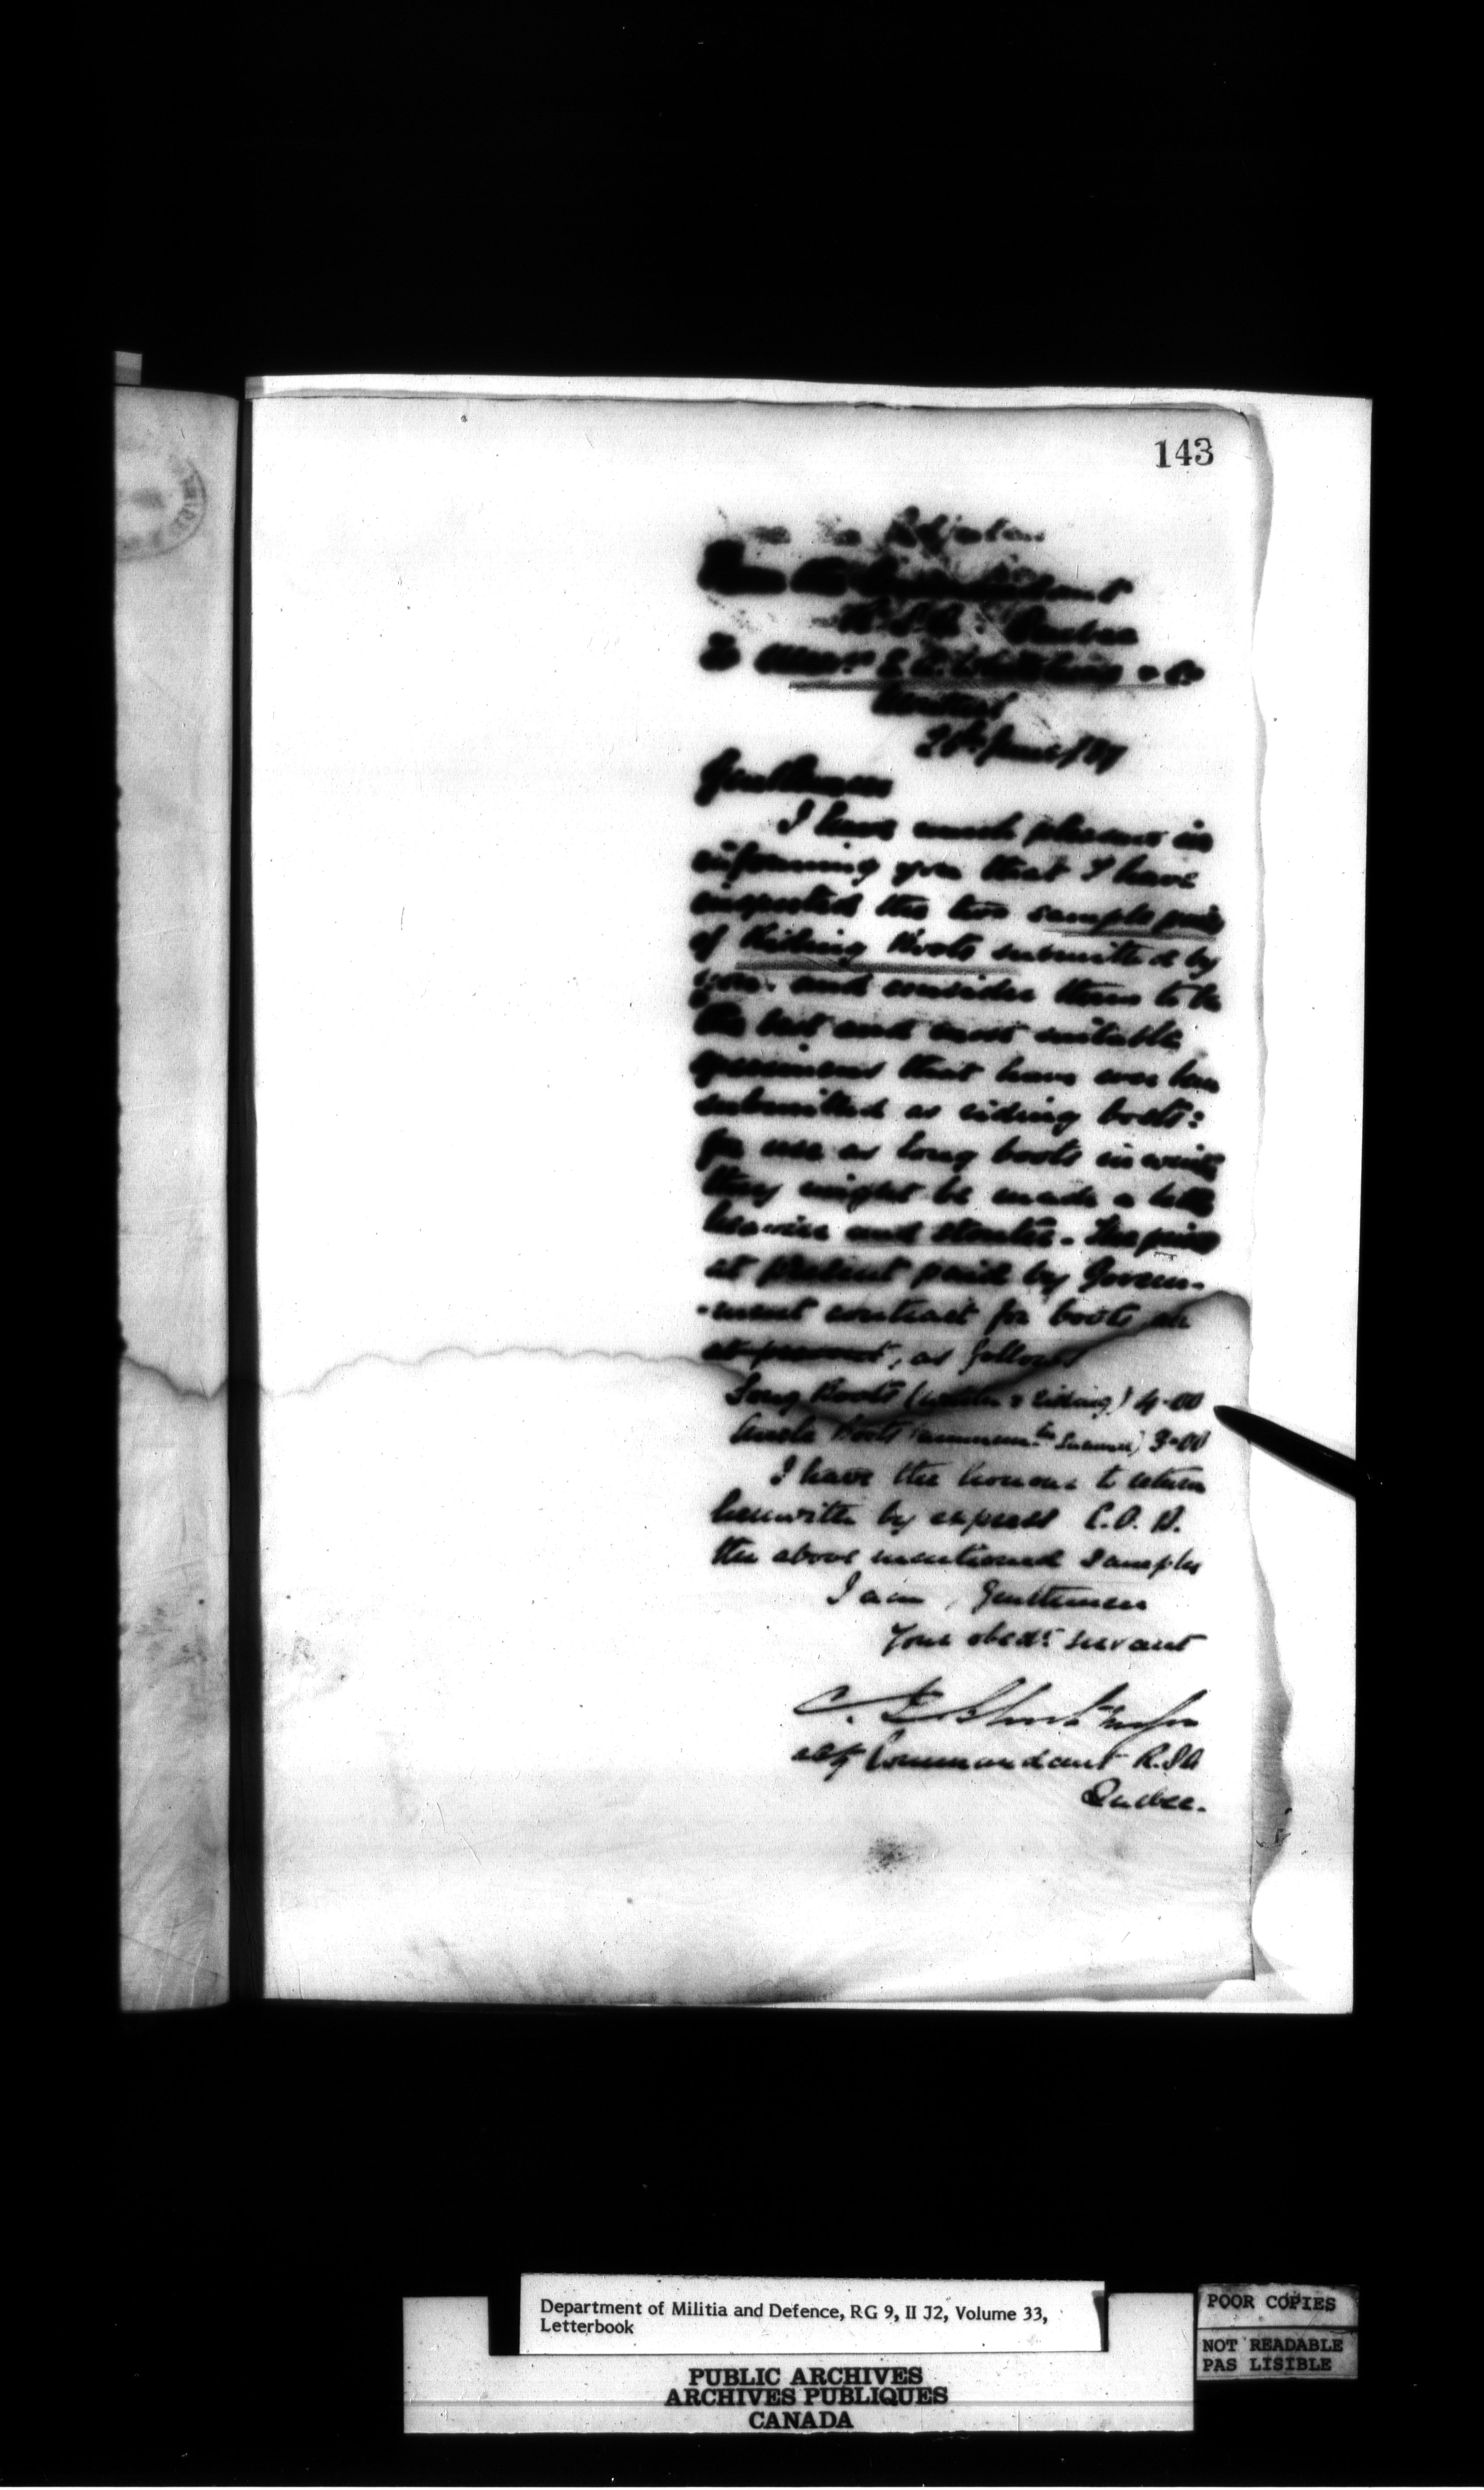 143
Adjutant
Commandant
R.S.A. Quebec
To Messrs & Co
Montreal
20th June /89
Gentlemen
I have much pleasure in
informing you that I have
inspected the two sample pairs
of Riding Boots submitted by
you. and consider them to be
the best and most suitable
specimens that have ever been
submitted as riding boots:
for use as long boots in winter
they might be made a little
heavier and stouter. The price
at present paid by Govern-
-ment contract for boots are
at present, as follows
Long Boots (winter & riding) 4-00
Ankle Boots (summer) 3-00
I have the honour to return
herewith by express C.O.D.
the above mentioned samples
I am, Gentlemen
Your obedt. servant
C.
actg Commandant R.S.A
Quebec.
Department of Militia and Defence, RG 9, II J2, Volume 33,
Letterbook
PUBLIC ARCHIVES
ARCHIVES PUBLIQUES
CANADA
POOR COPIES
NOT READABLE
PAS LISIBLE